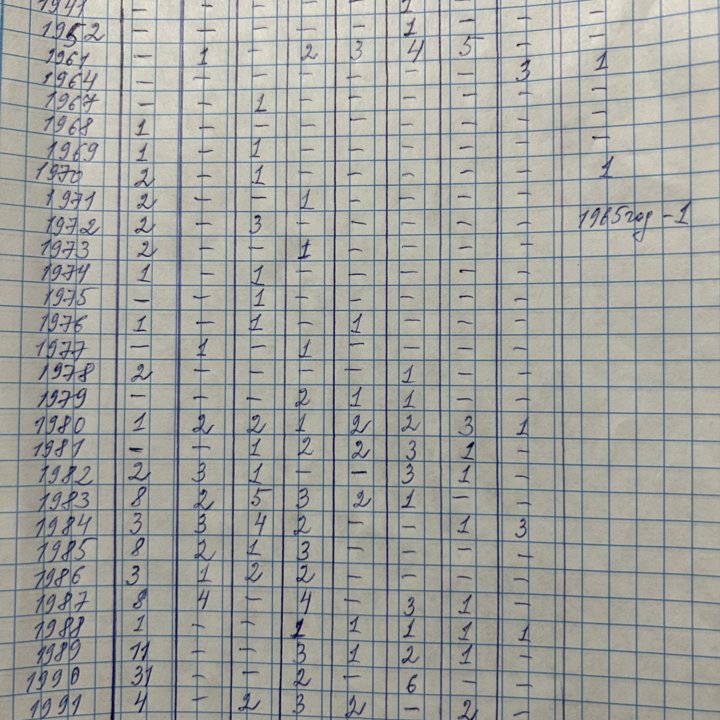 1941 – – – – – 1 – – –
1952 – – – – – 1 – – –
1961 – 1 – 2 3 4 5 – –
1964 – – – – – – – 3 1
1967 – – 1 – – – – – –
1968 1 – – – – – – – –
1969 1 – 1 – – – – – –
1970 2 – 1 – – – – – 1
1971 2 – – 1 – – – –
1972 2 – 3 – – – – – 1965 год – 1
1973 2 – – 1 – – – –
1974 1 – 1 – – – – –
1975 – – 1 – – – – –
1976 1 – 1 – 1 – – –
1977 – 1 – 1 – – – –
1978 2 – – – – 1 – –
1979 – – – 2 1 1 – –
1980 1 2 2 1 2 2 3 1
1981 – – 1 2 2 3 1 –
1982 2 3 1 – – 3 1 –
1983 8 2 5 3 2 1 – –
1984 3 3 4 2 – – 1 3
1985 8 2 1 3 – – – –
1986 3 1 2 2 – – – –
1987 8 4 – 4 – 3 1 –
1988 1 – – 1 1 1 1 1
1989 11 – – 3 1 2 1 –
1990 31 – – 2 – 6 – –
1991 4 – 2 3 2 – 2 –